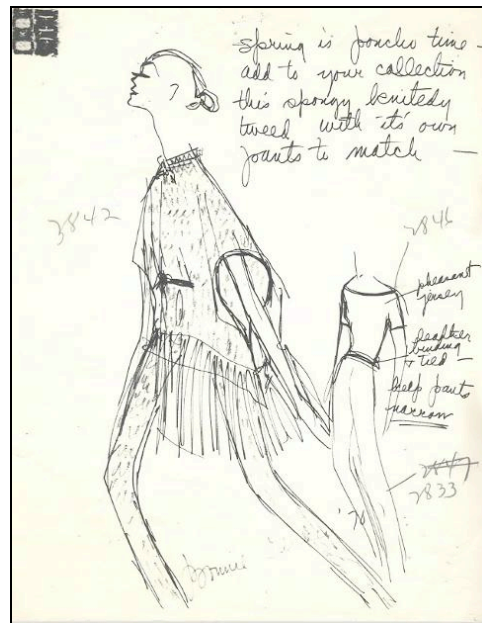 spring is poncho time -
add to your collection
this spongy knitedy
tweed with it's own
pants to match —
3842
2846
pheasant
jersey
leather
binding
tied —
keep pants
narrow
2833
'70
Bonnie